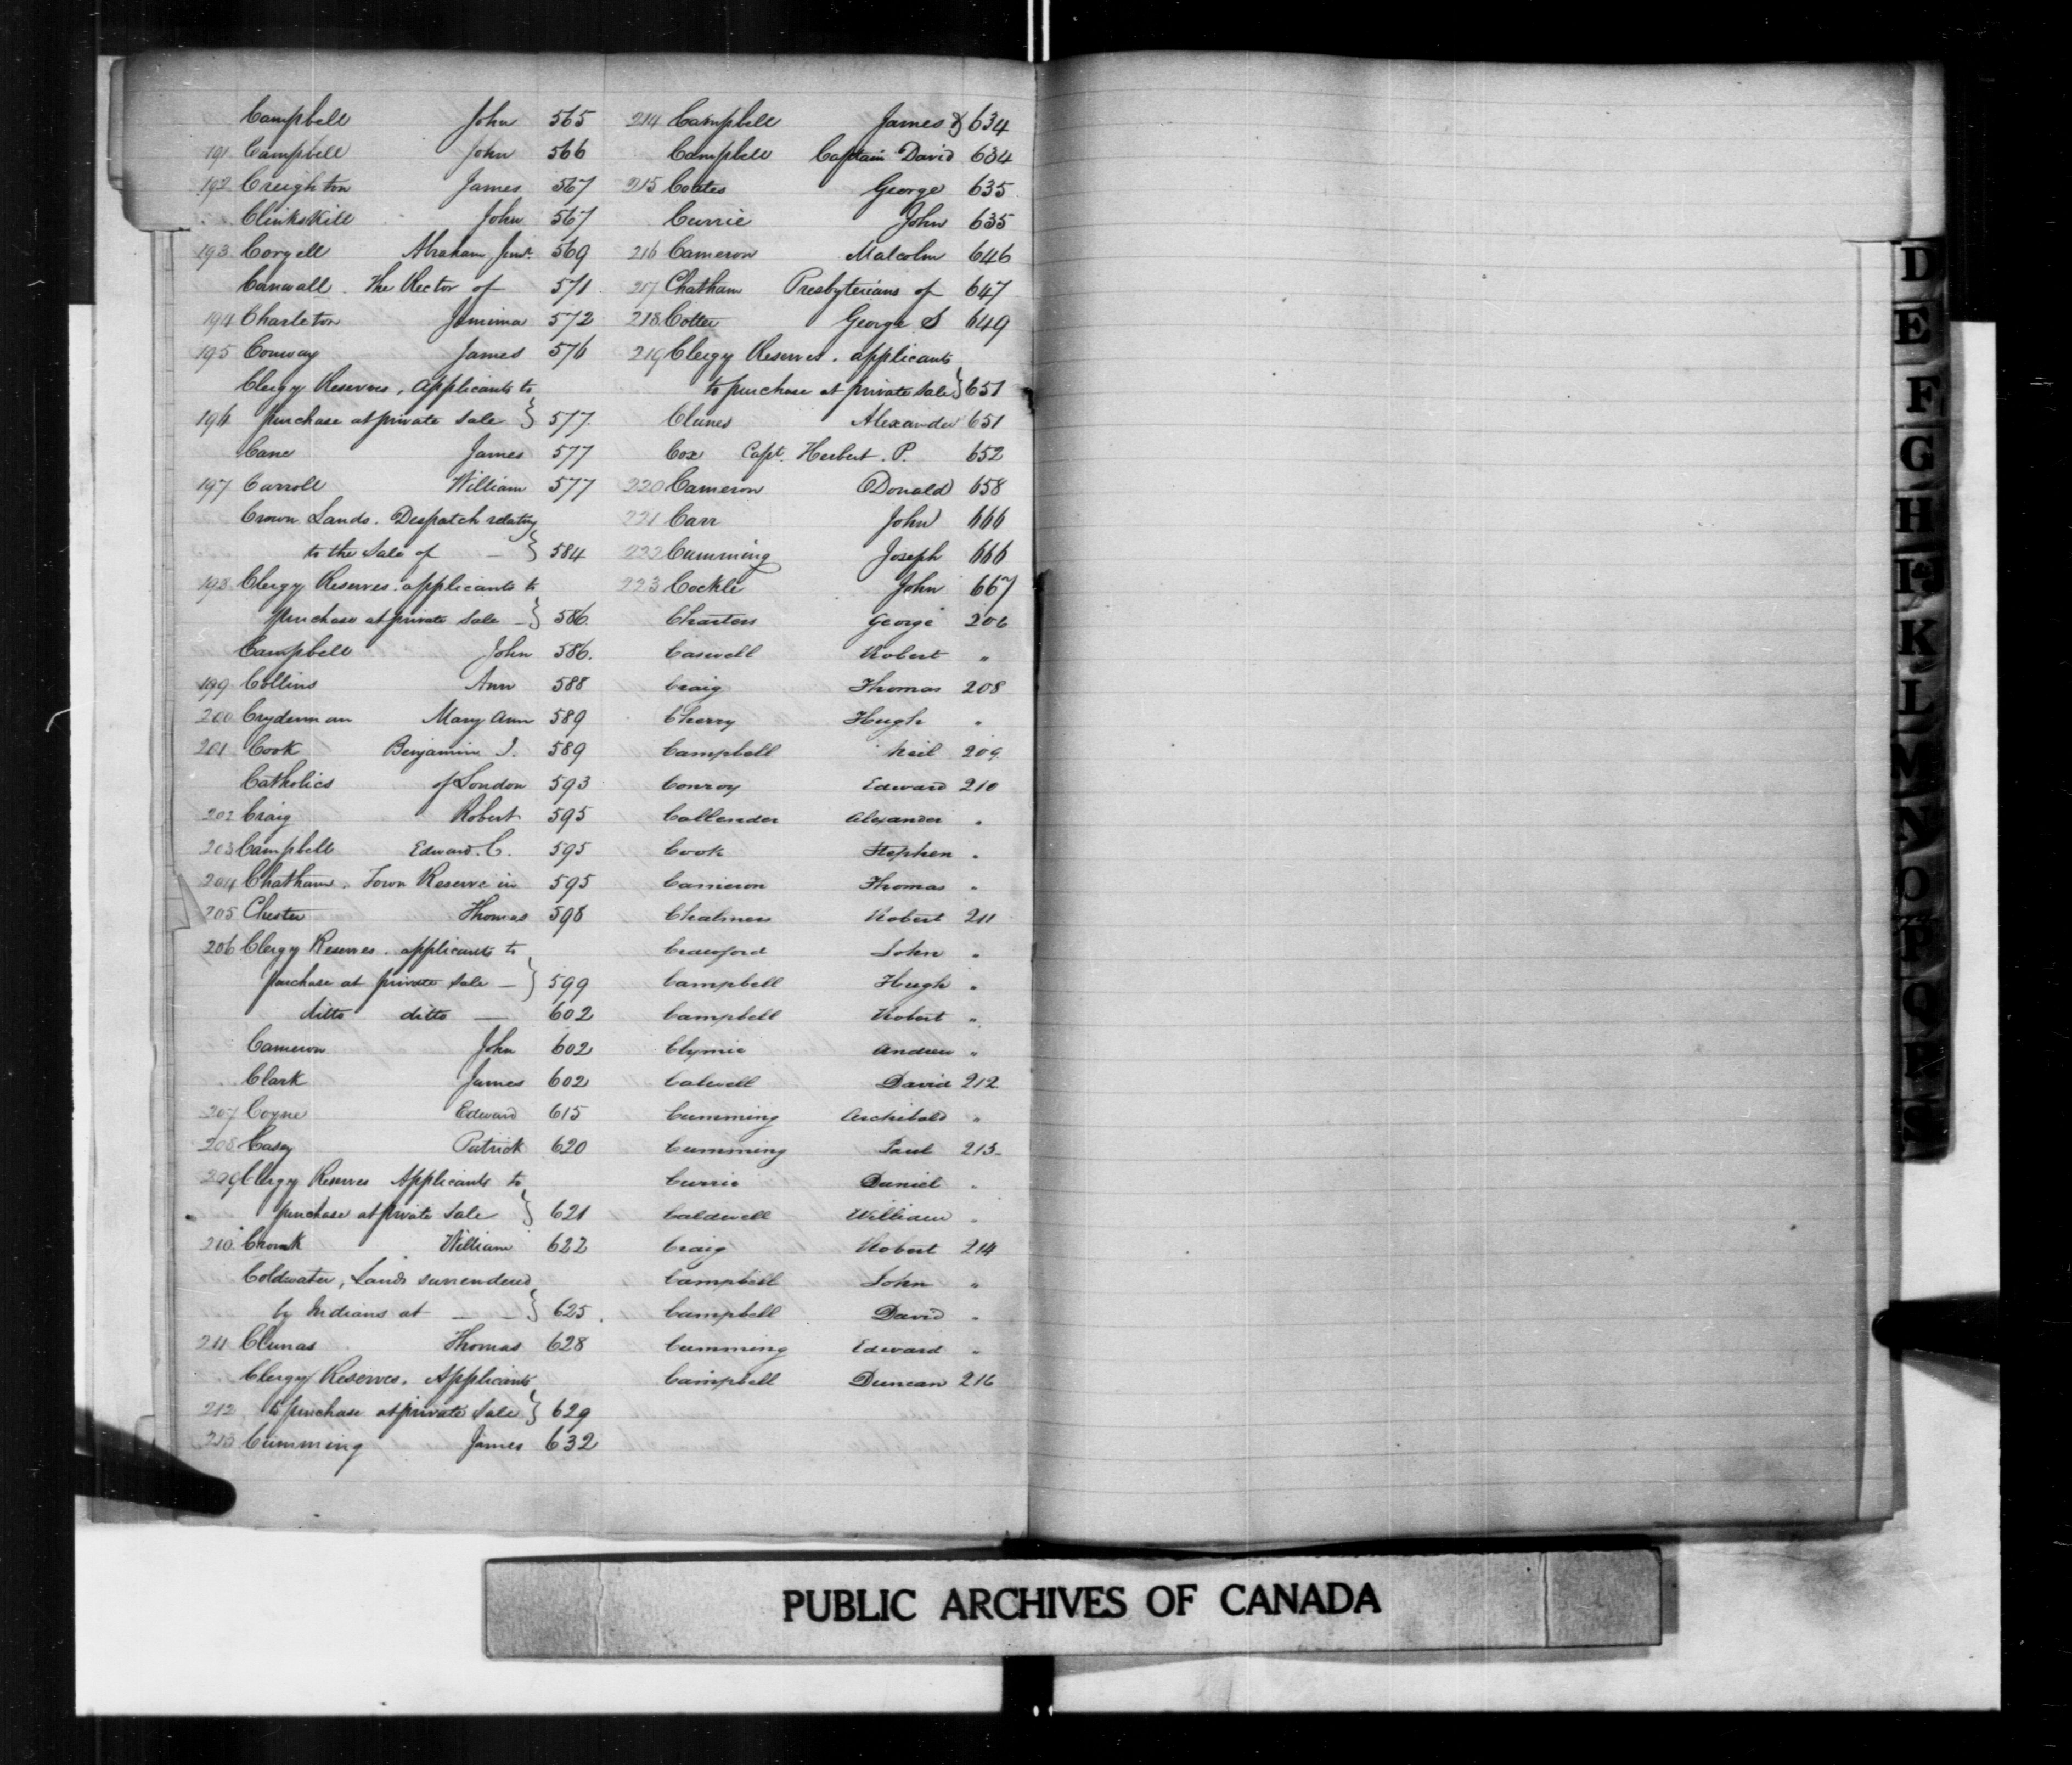 Campbell John 565
191 Campbell John 566
192 Creighton James 567
Clinkskill John 567
193 Coryell Abraham, Junr. 569
Cornwall. The Rector of 571
194 Charleton Jemima 572
195 Conway James 576
Clergy Reserves, Applicants to
196 purchase at private sale } 577
Cane James 577
197 Carroll William 577
Crown Lands. Despatch relating
to the Sale of — } 584
198 Clergy Reserves. applicants to
purchase at private sale — } 586
Campbell John 586.
199 Collins Ann 588
200 Cryderman Mary Ann 589
201 Cook Benjamin I. 589
Catholics of London 593
202 Craig Robert 595
203 Campbell Edward. C. 595
204 Chatham. Town Reserve in 595
205 Chester Thomas 598
206 Clergy Reserves. applicants to
purchase at private sale — } 599
ditto ditto — 602
Cameron John 602
Clark James 602
207 Coyne Edward 615
208 Casey Patrick 620
209 Clergy Reserves Applicants to
purchase at private sale } 621
210 Cronk William 622
Coldwater, Lands surrendered
by Indians at — — } 625
211 Clunas Thomas 628
Clergy Reserves. Applicants
212 to purchase at private Sale } 629
213 Cumming James 632
214 Campbell James & 634
Campbell Captain David 634
215 Coates George 635
Currie John 635
216 Cameron Malcolm 646
217 Chatham Presbyterians of 647
218 Cotter George S 649
219 Clergy Reserves. applicants
to purchase at private sale } 651
Clunes Alexander 651
Cox Capt. Herbert. P. 652
220 Cameron Donald 658
221 Carr John 666
222 Cumming Joseph 666
223 Cockle John 667
Charters George 206
Caswell Robert "
Craig Thomas 208
Cherry Hugh "
Campbell Neil 209
Conroy Edward 210
Callender Alexander "
Cook Stephen "
Cameron Thomas "
Chalmers Robert 211
Crawford John "
Campbell Hugh "
Campbell Robert "
Clymie Andrew "
Calwell David 212
Cumming Archibald "
Cumming Paul 213
Currie Daniel "
Caldwell William "
Craig Robert 214
Campbell John "
Campbell David "
Cumming Edward "
Campbell Duncan 216
D
E
F
G
H
I
K
L
M
N
O
P
Q
R
PUBLIC ARCHIVES OF CANADA